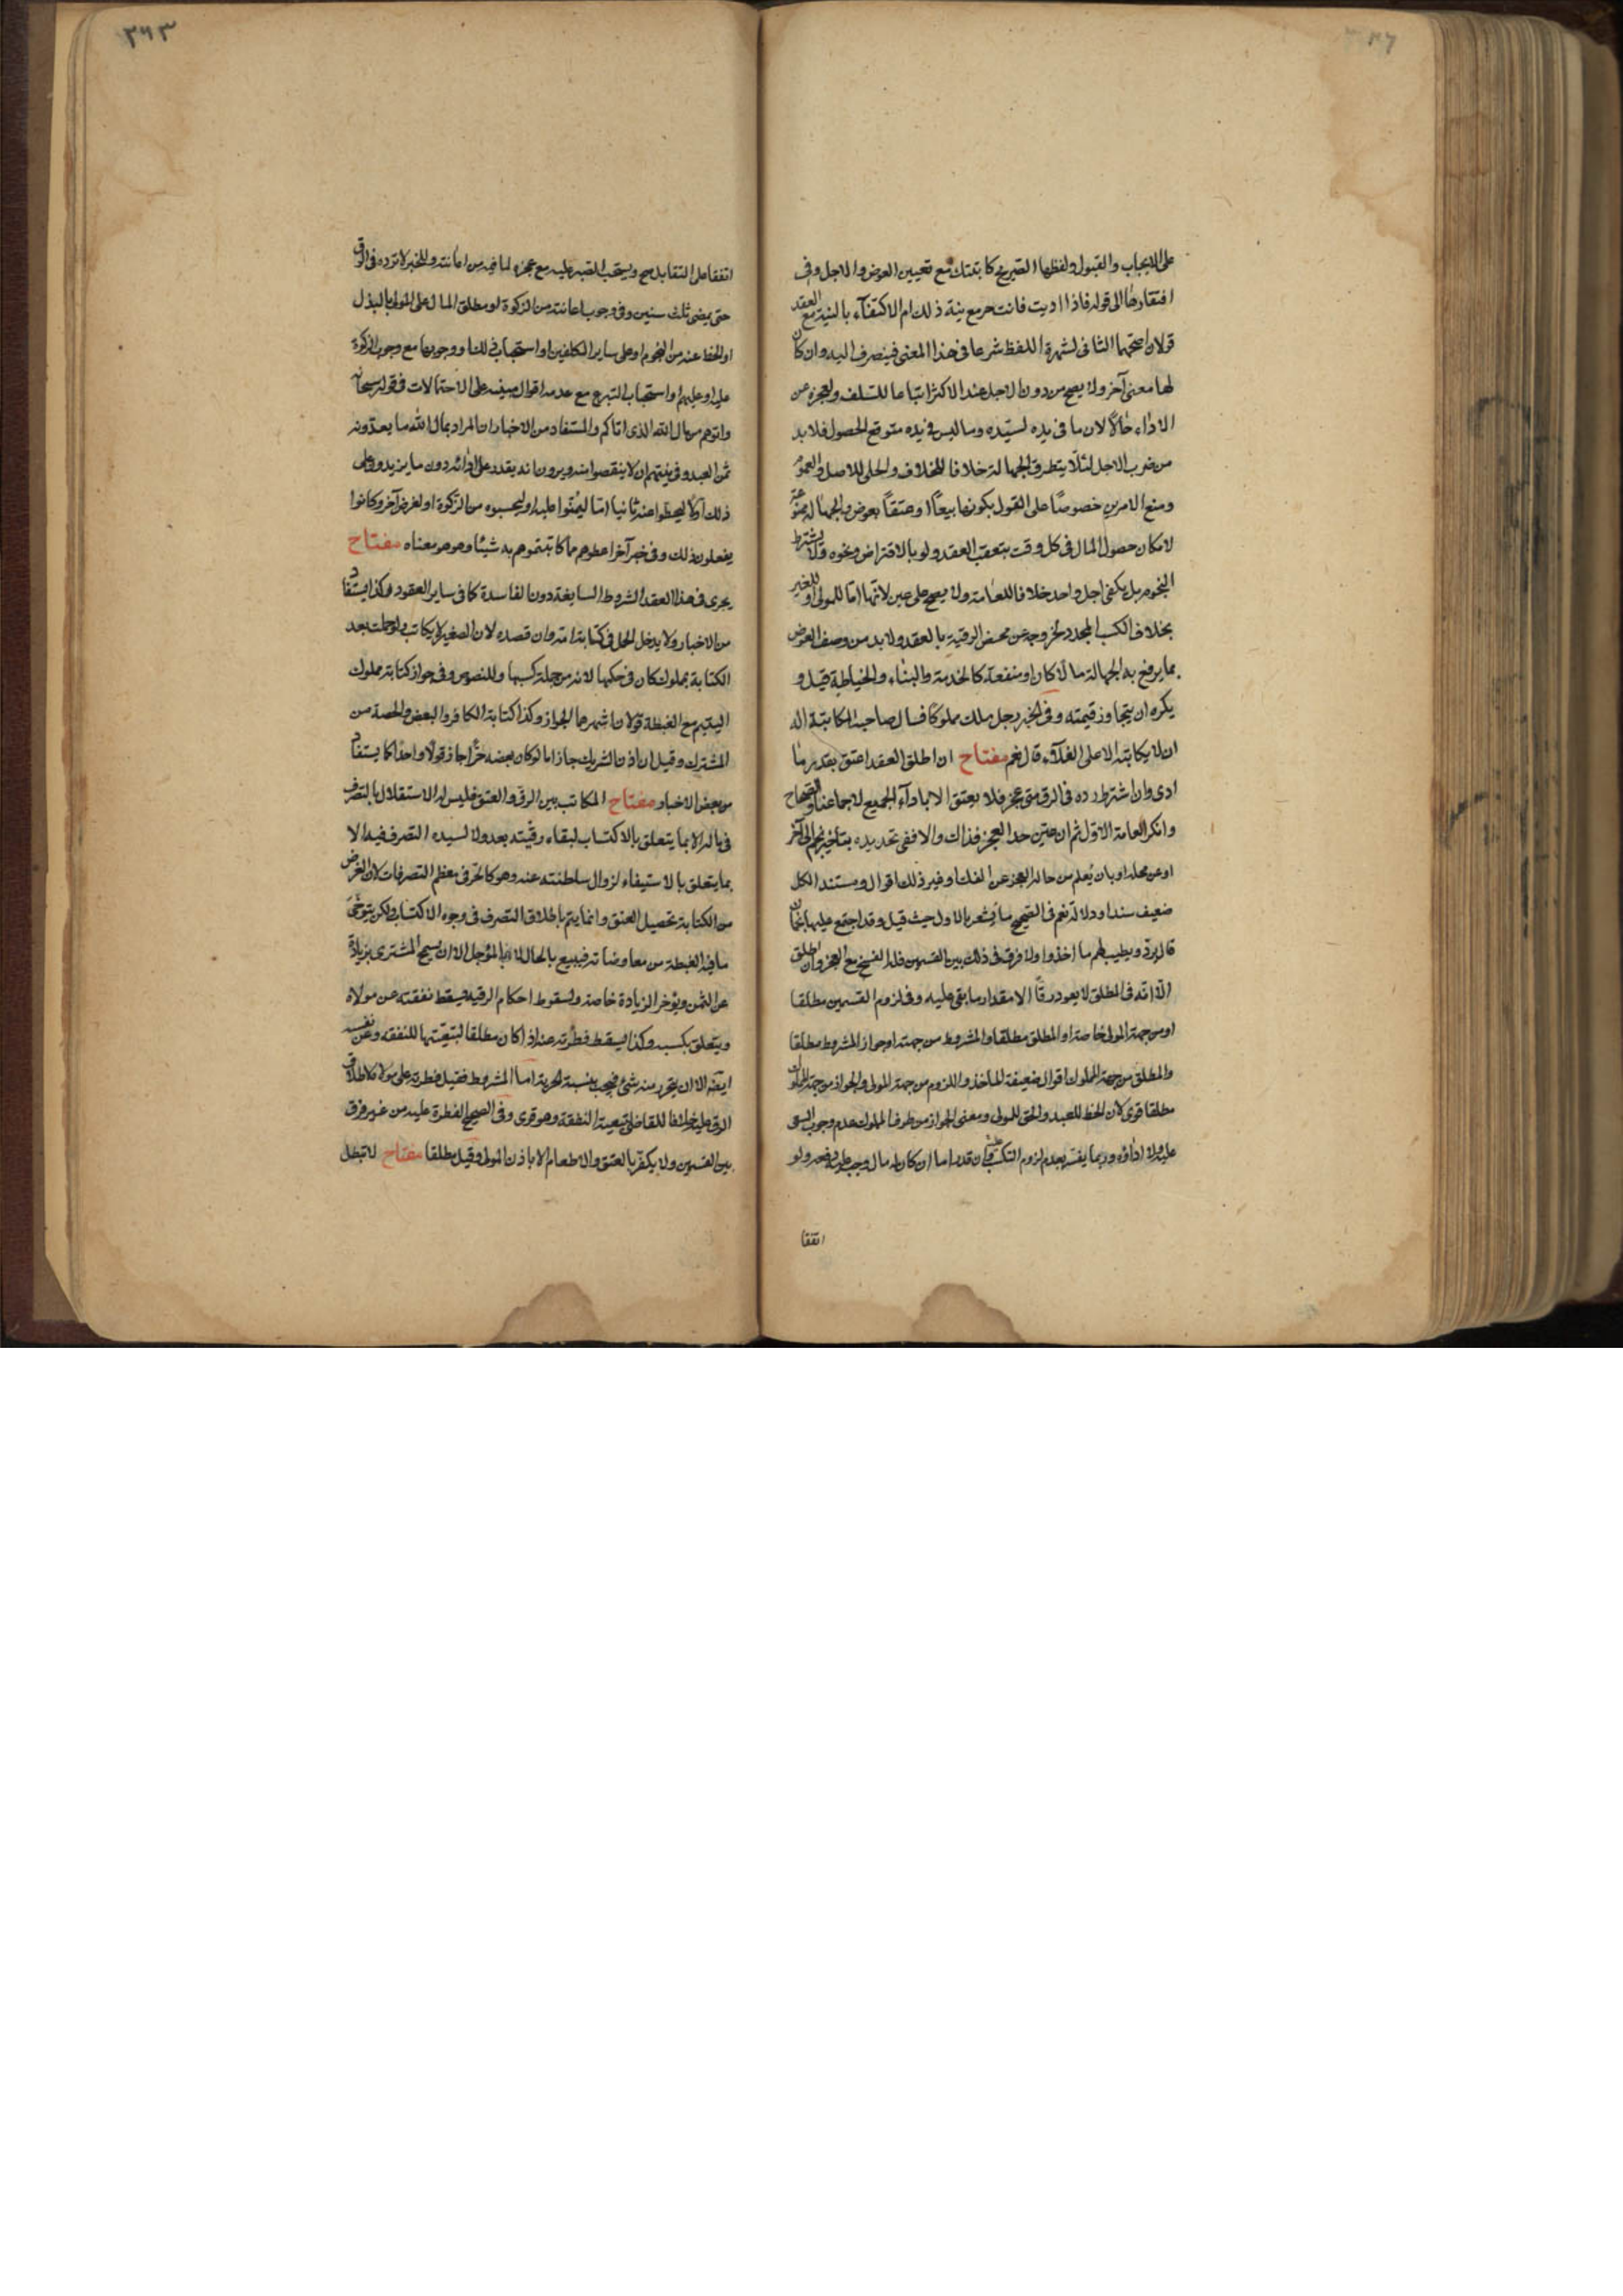 على الايجاب والقبول ولفظها الصريح كاتبتك مع تعيين العوض والاجل وفى
افتقارها الى قوله فاذا اديت فانت حر مع نية ذلك ام الاكتفآء بالنية مع العقد
قولان اصحهما الثانى لشهرة اللفظ شرعا فى هذا المعنى فينصرف اليه وان كان
لها معنى آخر ولا يصح من دون الاجل عند الاكثر اتباعا للسلف ولعجزه عن
الاداء حالاً لان ما فى يده لسيده وما ليس فى يده متوقع الحصول فلا بد
من ضرب الاجل لئلا يتطرق الجهالة خلافا للخلاف والحلى للاصل والعموم
ومنع الامرين خصوصًا على القول بكونها بيعاً او عتقاً بعوض والجهالة ممنوعة
لامكان حصول المال فى كل وقت يتعقب العقد ولو بالاقتراض ونحوه ولا يشترط
النجوم بل يكفى اجل واحد خلافا للعامة ولا يصح على عين لانها اما للمولى او للغير
بخلاف الكسب المجدد لخروجه عن محض الرقية بالعقد ولا بد من وصف العوض
بما يرفع به الجهالة مالاً كان او منفعة كالخدمة والبناء والخياطة قيل و
يكره ان يتجاوز قيمته وفى الخبر رجل ملك مملوكاً فسال صاحبه المكاتبة اله
ان لا يكاتبه الا على الغلآء قال نعم مفتاح ان اطلق العقد اعتق بقدر ما
ادى وان اشترط رده فى الرق متى عجز فلا يعتق الا باداآء الجميع لاجماعنا والصحاح
وانكر العامة الاول ثم ان عين حد العجز فذاك والا ففى تحديده بتاخير نجم الى آخر
او عن محله او بان يعلم من حاله العجز عن الفك او غير ذلك اقوال ومستند الكل
ضعيف سندا ودلالة نعم فى الصحيح ما يشعر بالاول حيث قيل وقد اجتمع عليه نجمان
قال يرد ويطيب لهم ما اخذوا ولا فرق فى ذلك بين القسمين فله الفسخ مع العجز وان اطلق
الا انه فى المطلق لا يعود رقاً الا مقدار ما بقى عليه وفى لزوم القسمين مطلقا
او من جهة المولى خاصة او المطلق مطلقا والمشروط من جهته او جواز المشروط مطلقا
والمطلق من جهة المملوك اقوال ضعيفة الماخذ واللزوم من جهة المولى والجواز من جهة المملوك
مطلقا قوى لان الحظ للعبد والحق للمولى ومعنى الجواز من طرف المملوك عدم وجوب السعى
عليه ولا اداؤه وربما يفسر بعدم لزوم التكسب عليه وان قدر اما ان كان له مال وجب عليه دفعه ولو
اتفقا
اتفقا على التقابل صح ويستحب الصبر عليه مع عجزه لما فيه من اعانته وللخبر لا ترده فى الرق
حتى يمضى ثلث سنين وفى وجوب اعانته من الزكوة لو مطلق المال على المولى بالبذل
او الحط عنه من النجوم او على ساير المكلفين او استحبابه لنا او وجوبها مع وجوب الزكوة
عليه او عليهم او استحباب التبرع مع عدمه اقوال مبنية على الاحتمالات فى قوله سبحانه
واتوهم من مال الله الذى اتاكم والمستفاد من الاخبار ان المراد بمال الله ما يعدونه
ثمن العبد وفى نيتهم ان لا ينقصوا منه ويرون انه يقدر على ادائه دون ما يزيدو على
ذلك اولاً ليحطوا عنه ثانيا اما ليمنوا عليه او ليحسبوه من الزكوة او لغرض آخر وكانوا
يفعلون ذلك وفى خبر آخر اعطوهم مما كاتبتموهم به شيئا وهو هو معناه مفتاح
يجرى فى هذا العقد الشروط السايغة دون الفاسدة كما فى ساير العقود هكذا يستفاد
من الاخبار ولا يدخل الحمل فى كتابة امه وان قصده لان الصغير لا يكاتب ولو حملت بعد
الكتابة بمملوك كان فى حكمها لانه من جملة كسبها وللنصوص وفى جواز كتابة مملوك
اليتيم مع الغبطة قولان اشهرهما الجواز وكذا كتابة الكافر والبعض والحصة من
المشترك وقيل ان اذن الشريك جاز اما لو كان بعضه حرًا جاز قولا واحدًا كما يستفاد
من بعض الاخبار مفتاح المكاتب بين الرق والعتق فليس له الاستقلال بالتصرف
فى ماله الا بما يتعلق بالاكتساب لبقاء رقيته بعد ولا لسيده التصرف فيه الا
بما يتعلق بالاستيفاء لزوال سلطنته عنه وهو كالحر فى معظم التصرفات لان الغرض
من الكتابة تحصيل العتق وانما يتم باطلاق التصرف فى وجوه الاكتساب ولكن يتوخى
ما فيه الغبطة من معاوضاته فيبيع بالحال لا بالمؤجل الا ان يسمح المشترى بزيادة
عن الثمن ويؤخر الزيادة خاصة ولسقوط احكام الرقية يسقط نفقته عن مولاه
ويتعلق بكسبه وكذا يسقط فطرته عنه اذا كان مطلقا لتبعيتها للنفقة وعن نفسه
ايضا الا ان يتحرر منه شئ فيجب بنسبة الحرية اما المشروط فقيل فطرته على مولاه لاطلاق
الرق عليه خلافا للقاضى لتبعية النفقة وهو قوى وفى الصحيح الفطرة عليه من غير فرق
بين القسمين ولا يكفر بالعتق والاطعام الا باذن المولى وقيل مطلقا مفتاح لا تبطل